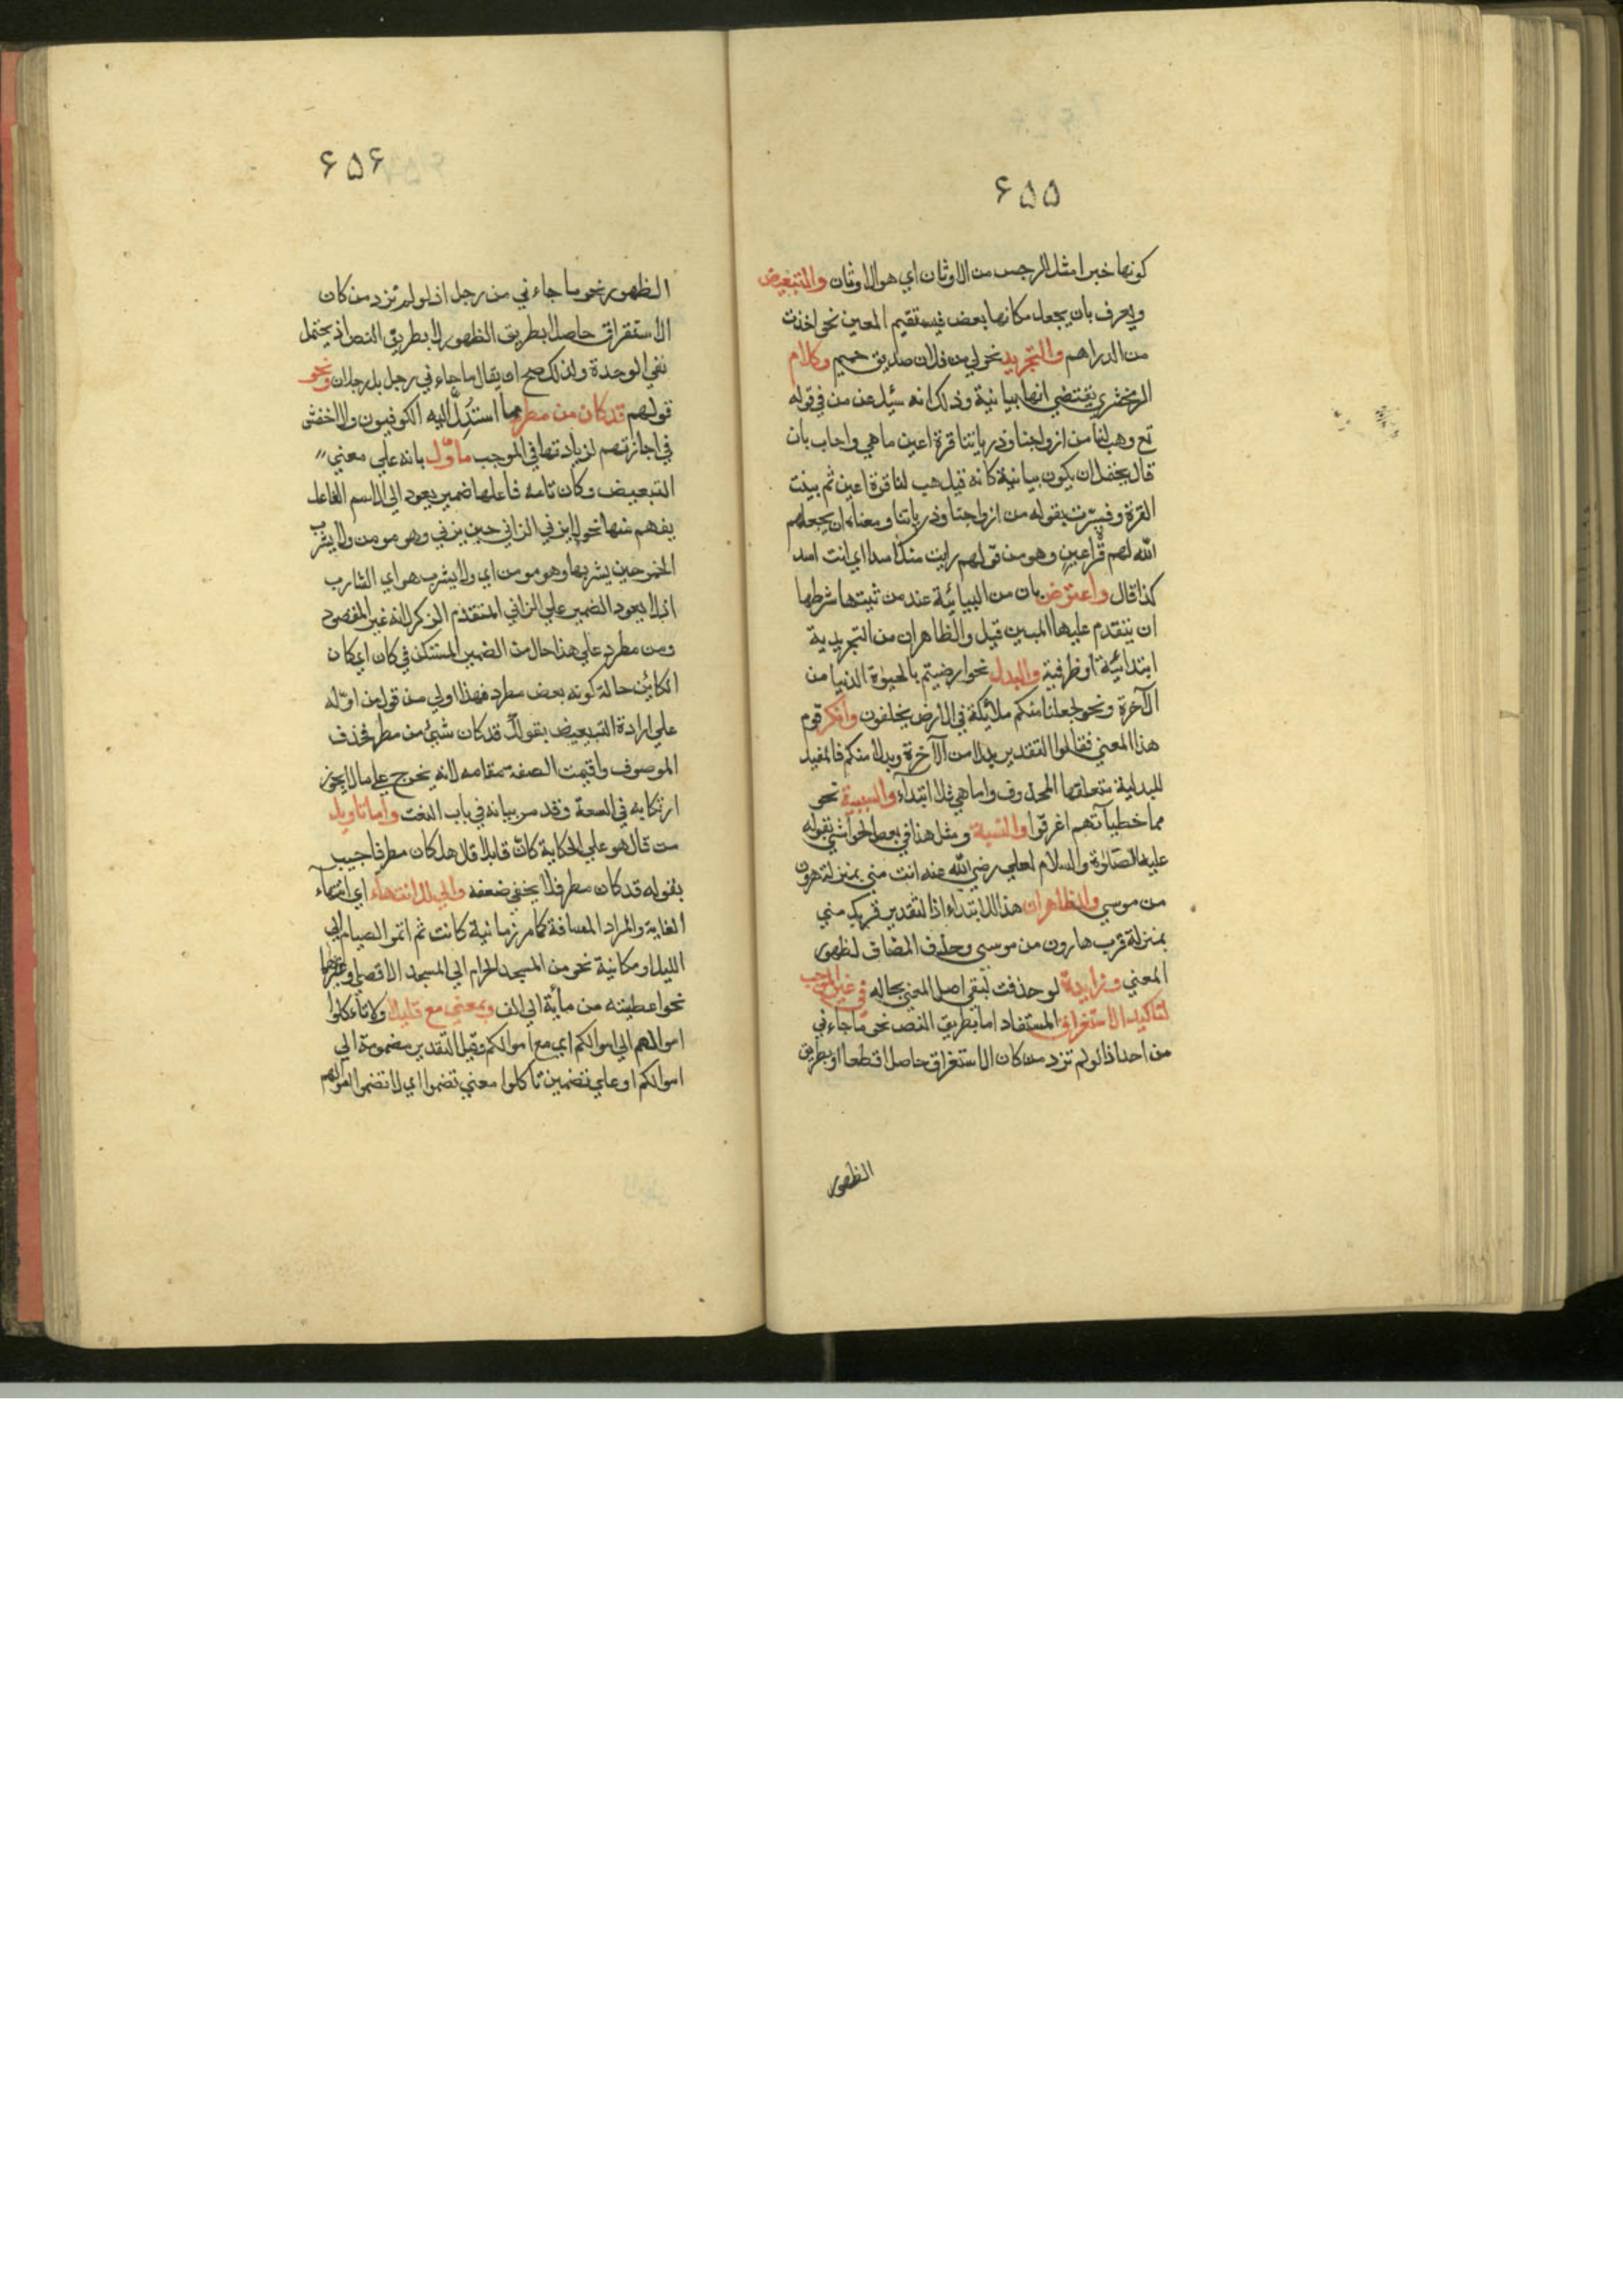 ۶۵۵
كونها خبرا مثل الرجس من الاوثان اي هو الاوثان والتبعيض
ويعرف بان يجعل مكانها بعض فيستقيم المعين نحو اخذت
من الدراهم والتجريد نحو لي من فلان صديق حميم وكلام
الزمخشري يقتضي انها بيانية وذلك انه سئل عن من في قوله
تع وهب لنا من ازواجنا وذرياتنا قرة اعين ما هي واجاب بان
قال يحتمل ان يكون بيانية كانه قيل هب لنا قرة اعين ثم بينت
القرة وفسرت بقوله من ازواجنا وذرياتنا ومعناه ان يجعلهم
الله لهم قرة اعين وهو من قولهم رايت منك اسدا اي انت اسد
كذا قال واعترض بان من البيائية عند من ثبتها شرطها
ان يتقدم عليها المبين قيل والظاهر ان من التجريدية
ابتدائية او ظرفية والبدل نحو ارضيتم بالحيوة الدنيا من
الآخرة ونحو لجعلنا منكم ملائكة في الارض يخلفون وانكر قوم
هذا المعني فقالوا التقدير بدلا من الآخرة وبدلا منكم فالمفيد
للبدلية متعلقها المحذوف واما هي فللابتداء والسببية نحو
مما خطيآتهم اغرقوا والنسبة ومثل هنا في بعض الحواشي بقوله
عليه الصلوة والسلام لعلي رضي الله عنه انت مني بمنزلة هرون
من موسي والظاهر ان هذا للابتداء اذ التقدير قربك مني
بمنزلة قرب هارون من موسي وحذف المضاف لظهور
المعني وزايدة لو حذفت لبقي اصل المعني بحاله في غير الموجب
لتاكيد الاستغراق المستفاد اما بطريق النص نحو ما جاءني
من احد اذ لو لم تزد من كان الاستغراق حاصلا قطعا او بطريق
الظهور
۶۵۶
الظهور نحو ما جاءني من رجل اذ لو لم تزد من كان
الاستقراق حاصلا بطريق الظهور لا بطريق النص اذ يحتمل
نفي الوحدة ولذلك صح ان يقال ما جاءني رجل بل رجلان ونحو
قولهم قد كان من مطر مما استدل اليه الكوفيون والاخفش
في اجازتهم لزيادتها في الموجب ماوّل بانه علي معني
التبعيض وكان تامة فاعلها ضمير يعود الي الاسم الفاعل
يفهم منها نحو لا يزني الزاني حين يزني وهو مومن ولا يشرب
الخمر حين يشربها وهو مومن اي ولا يشرب هو اي الشارب
اذ لا يعود الضمير علي الزاني المتقدم الذكر لانه غير المقصود
ومن مطر علي هذا حال من الضمير المستكن في كان اي كان
الكاين حالة كونه بعض مطر فهذا اولي من قول من اوّله
علي ارادة التبعيض بقولك قد كان شيئ من مطر فحذف
الموصوف واقيمت الصفة مقامه لانه يخرج علي ما لا يجوز
ارتكابه في السعة وقد مر بيانه في باب النعت واما تاويل
من قال هو علي الحكاية كانّ قايلا قال هل كان مطر فاجيب
بقوله قد كان مطر فلا يخفي ضعفه والي للانتهاء اي انتهاء
الغاية والمراد المسافة كما مر زمانية كانت ثم اتموا الصيام الي
الليل او مكانية نحو من المسجد الحرام الي المسجد الاقصي او غيرها
نحو اعطيته من مأية الي الف وبمعني مع قليلا ولا تاءكلوا
اموالهم الي اموالكم اي مع اموالكم وقيل التقدير مضمومة الي
اموالكم او علي تضمين تاكلوا معني تضموا اي لا تضموا اموالهم